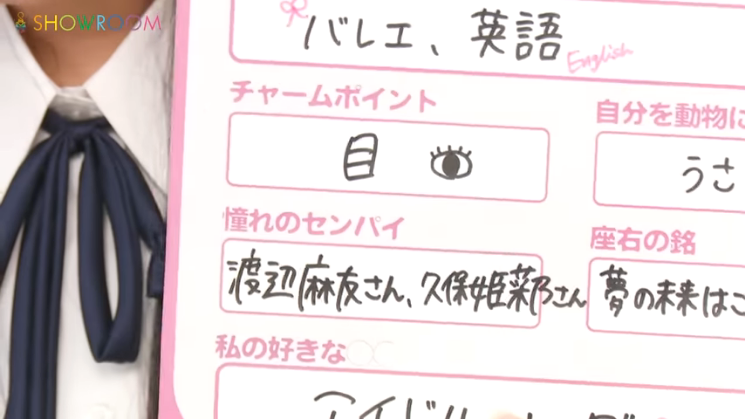 SHOWROOM
バレエ、英語
English
チャームポイント
目
自分を動物に
うさ
憧れのセンパイ
渡辺麻友さん、久保姫菜乃さん
座右の銘
夢の未来は
私の好きな○○
アイドル